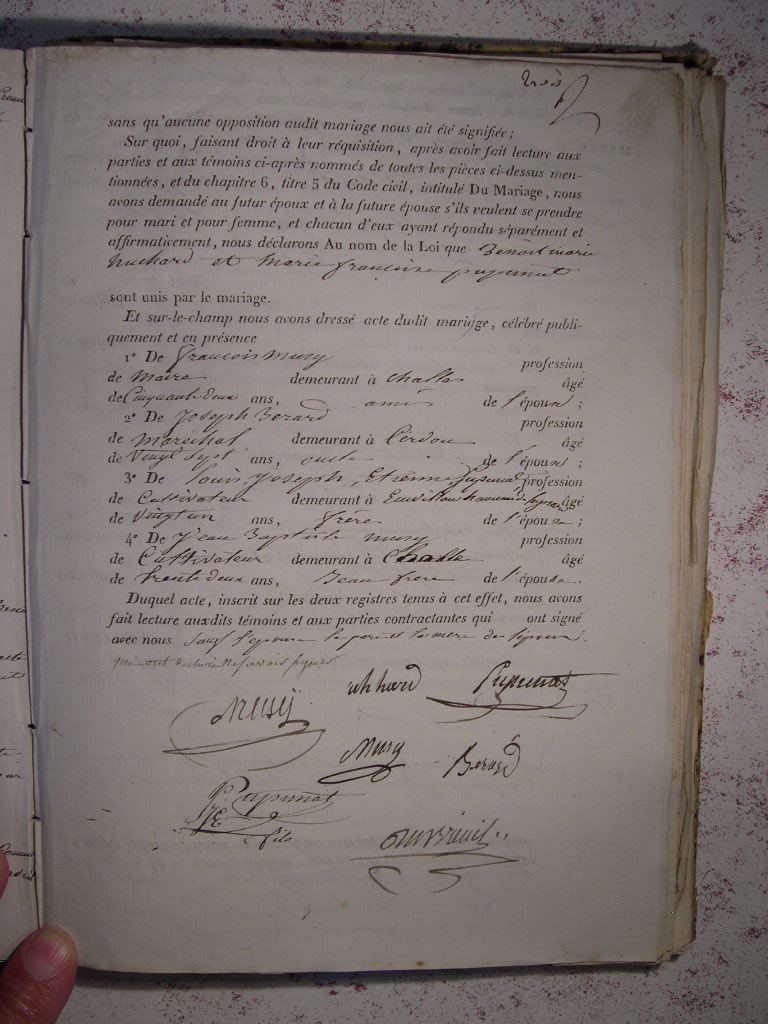 trois
sans qu'aucune opposition audit mariage nous ait été signifiée ;
Sur quoi, faisant droit à leur réquisition, après avoir fait lecture aux
parties et aux témoins ci-après nommés de toutes les pièces ci-dessus men-
tionnées, et du chapitre 6, titre 5 du Code civil, intitulé Du Mariage, nous
avons demandé au futur époux et à la future épouse s'ils veulent se prendre
pour mari et pour femme, et chacun d'eux ayant répondu séparément et
affirmativement, nous déclarons Au nom de la Loi que Benoit marie
huchard et marie françoise pupunat
sont unis par le mariage.
Et sur-le-champ nous avons dressé acte dudit mariage, célébré publi-
quement et en présence
1° De françois musy profession
de Maire demeurant à challes âgé
de Cinquante deux ans, amis de l'épouse ;
2° De Joseph Berard profession
de maréchal demeurant à Cerdon âgé
de vingt sept ans, oncle de l'épouse ;
3° De Louis Joseph, Etienne pupunat profession
de Cultivateur demeurant à âgé
de vingt un ans, frère de l'épouse ;
4° De Jean Baptiste musy profession
de Cultivateur demeurant à Challe âgé
de trente deux ans, Beau frere de l'épouse.
Duquel acte, inscrit sur les deux registres tenus à cet effet, nous avons
fait lecture auxdits témoins et aux parties contractantes qui ont signé
avec nous sauf l'épouse le pere et la mere de l'épouse
qui ont déclaré ne savoir signer
uhhard Pupunat
Musÿ
Musy Berard
P. Pupunat
fils